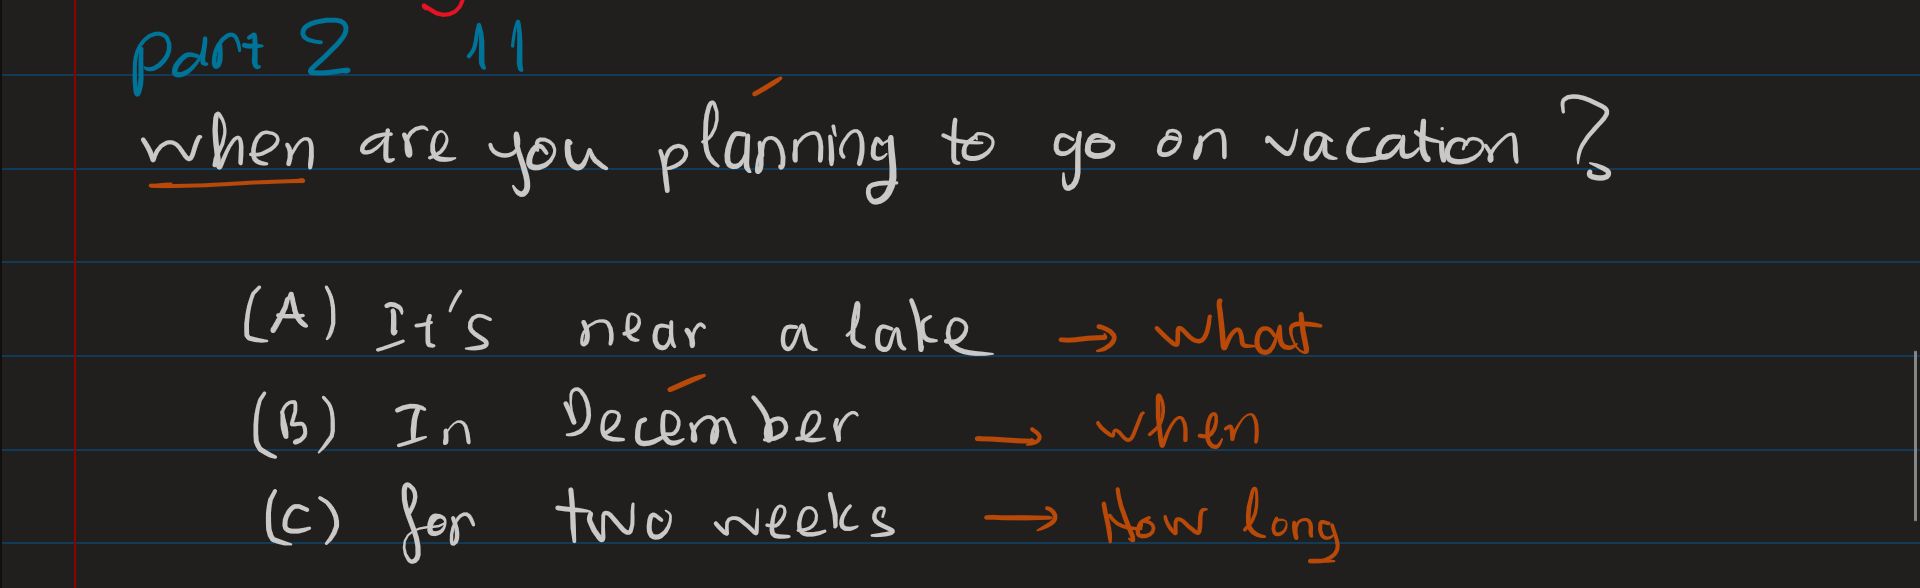 part 2 11
when are you planning to go on vacation ?
(A) It's near a lake → what
(B) In December → when
(C) for two weeks → How long